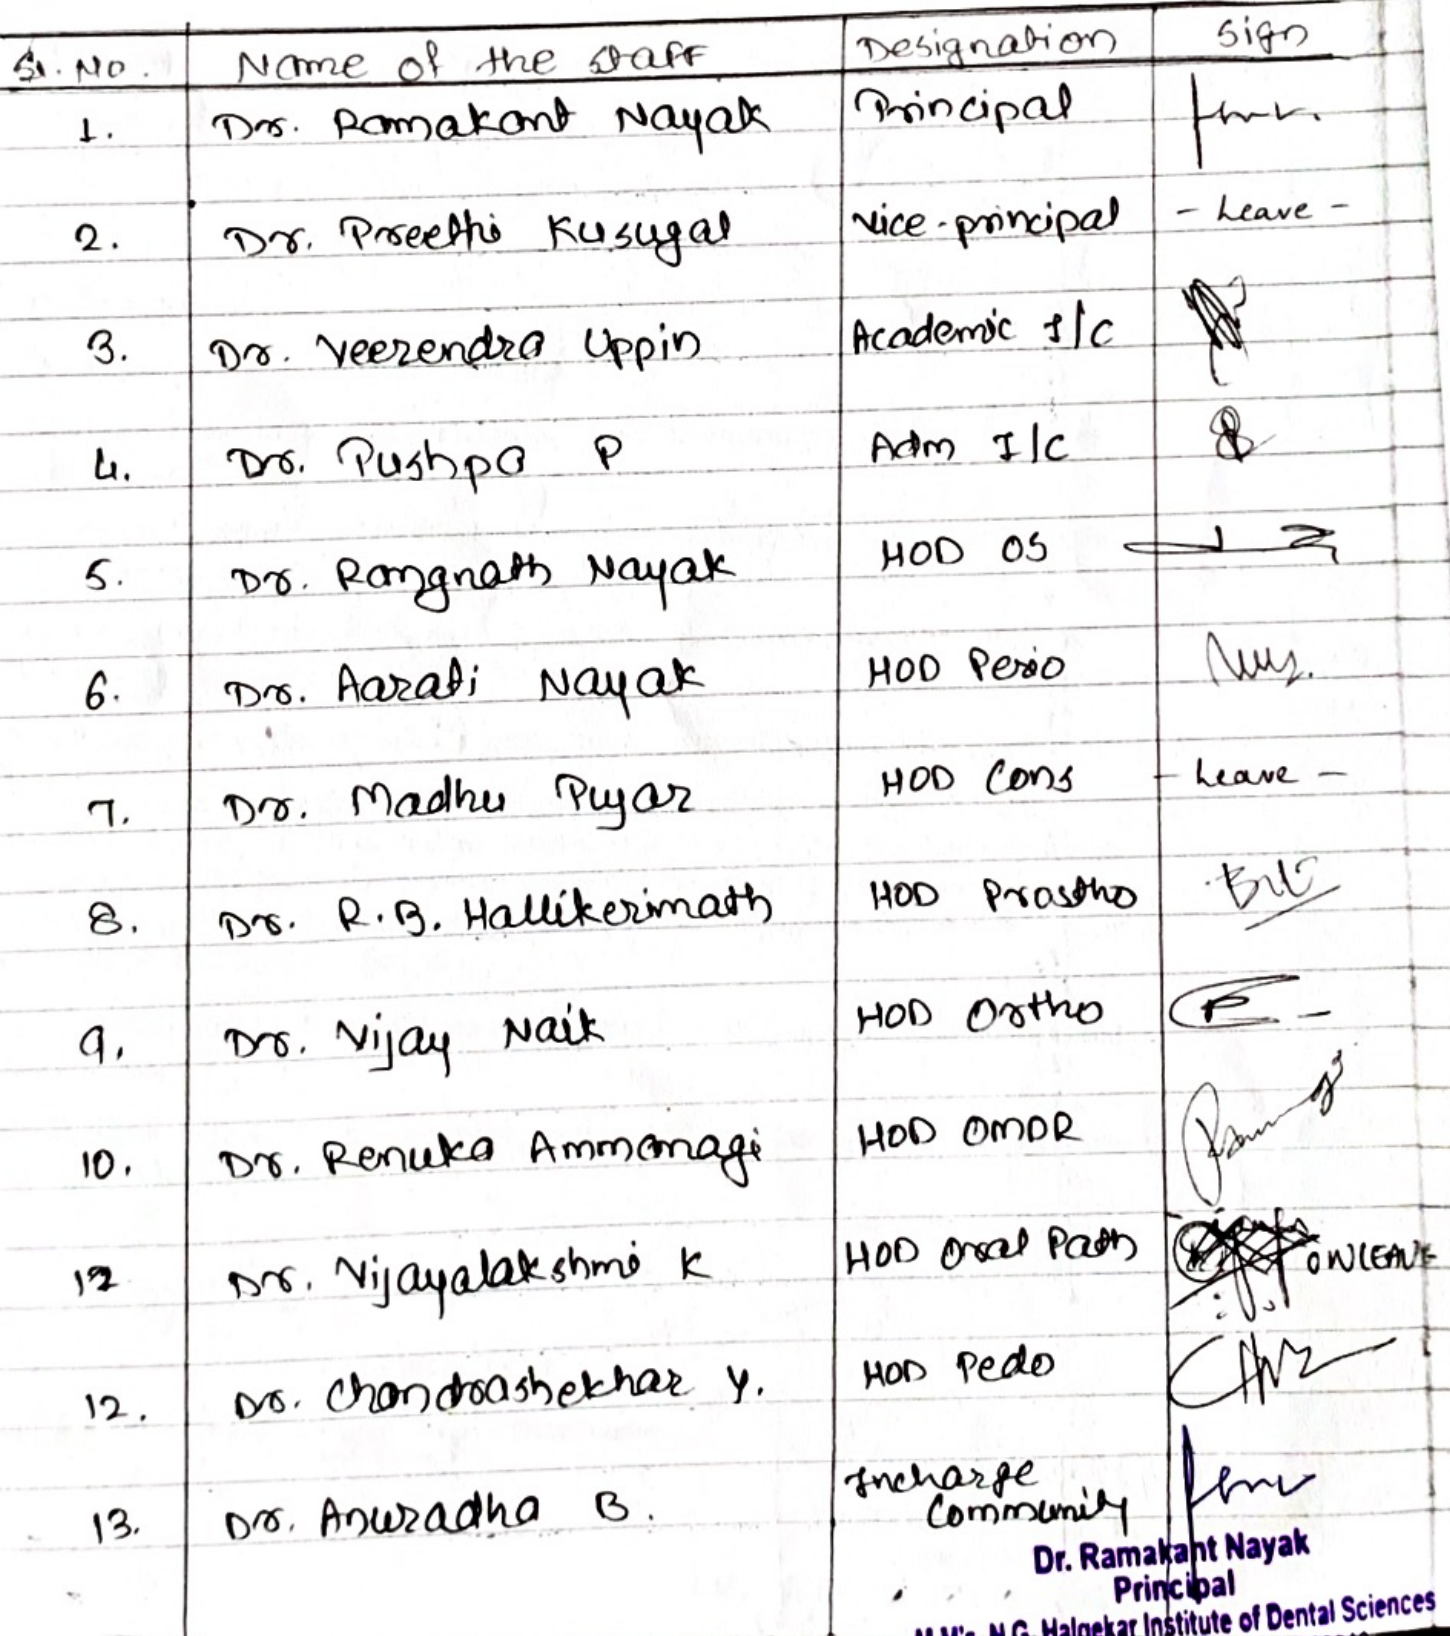 Sr. No. Name of the staff Designation Sign
1. Dr. Ramakant Nayak Principal
2. Dr. Preethi Kusugal Vice-principal - Leave -
3. Dr. Veerendra Uppin Academic I/C
4. Dr. Pushpa P Adm I/C
5. Dr. Rangnath Nayak HOD OS
6. Dr. Aarati Nayak HOD Perio
7. Dr. Madhu Pujar HOD Cons - Leave -
8. Dr. R.B. Hallikerimath HOD Prostho
9. Dr. Vijay Naik HOD Ortho
10. Dr. Renuka Ammanagi HOD OMDR
12 Dr. Vijayalakshmi K HOD Oral Path ON LEAVE
12. Dr. Chandrashekhar Y. HOD Pedo
13. Dr. Anuradha B. Incharge
Community
Dr. Ramakant Nayak
Principal
M.M's. N.G. Halgekar Institute of Dental Sciences